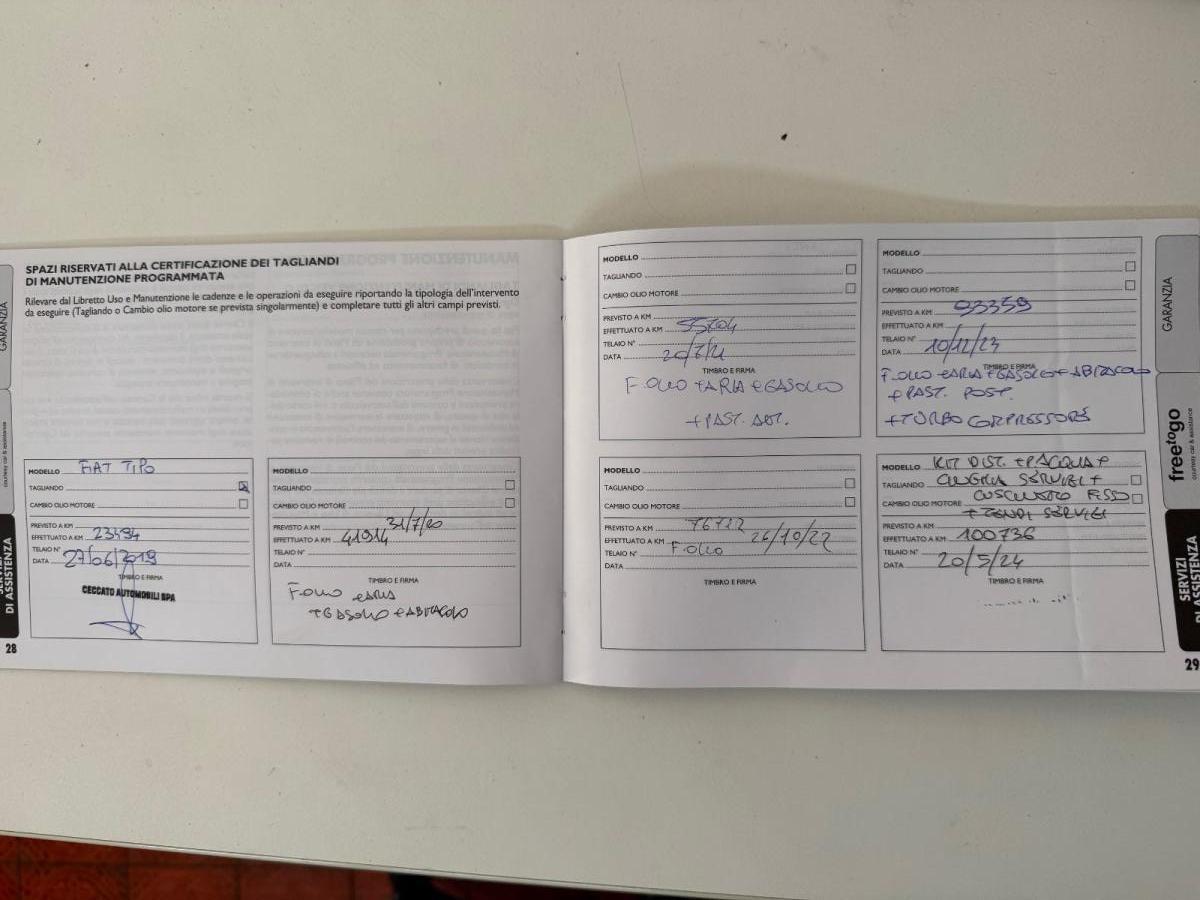 SPAZI RISERVATI ALLA CERTIFICAZIONE DEI TAGLIANDI
DI MANUTENZIONE PROGRAMMATA
Rilevare dal Libretto Uso e Manutenzione le cadenze e le operazioni da eseguire riportando la tipologia dell'intervento
da eseguire (Tagliando o Cambio olio motore se prevista singolarmente) e completare tutti gli altri campi previsti.
GARANZIA
courtesy car & assistance
SERVIZI
DI ASSISTENZA
28
MODELLO FIAT TIPO
TAGLIANDO
CAMBIO OLIO MOTORE
PREVISTO A KM
EFFETTUATO A KM 23494
TELAIO N°
DATA 27/06/2019
TIMBRO E FIRMA
CECCATO AUTOMOBILI SPA
MODELLO
TAGLIANDO
CAMBIO OLIO MOTORE
PREVISTO A KM 31/7/20
EFFETTUATO A KM 41914
TELAIO N°
DATA
TIMBRO E FIRMA
F. OLIO +ARIA
+GASOLIO +ABITACOLO
MODELLO
TAGLIANDO
CAMBIO OLIO MOTORE
PREVISTO A KM
EFFETTUATO A KM
TELAIO N°
DATA
TIMBRO E FIRMA
F. OLIO +ARIA +GASOLIO
+PAST. ANT.
MODELLO
TAGLIANDO
CAMBIO OLIO MOTORE
PREVISTO A KM 93359
EFFETTUATO A KM
TELAIO N°
DATA 10/12/23
TIMBRO E FIRMA
F. OLIO +ARIA +GASOLIO +ABITACOLO
+PAST. POST.
+TURBO COMPRESSORE
MODELLO
TAGLIANDO
CAMBIO OLIO MOTORE
PREVISTO A KM 76712
EFFETTUATO A KM 26/10/22
TELAIO N° F. OLIO
DATA
TIMBRO E FIRMA
MODELLO KIT DIST. +P.ACQUA+
TAGLIANDO CINGHIA SERVIZI +
CAMBIO OLIO MOTORE CUSCINETTO FISSO
+ TENDI SERVIZI
PREVISTO A KM
EFFETTUATO A KM 100736
TELAIO N°
DATA 20/5/24
TIMBRO E FIRMA
GARANZIA
freetogo
courtesy car & assistance
SERVIZI
DI ASSISTENZA
29